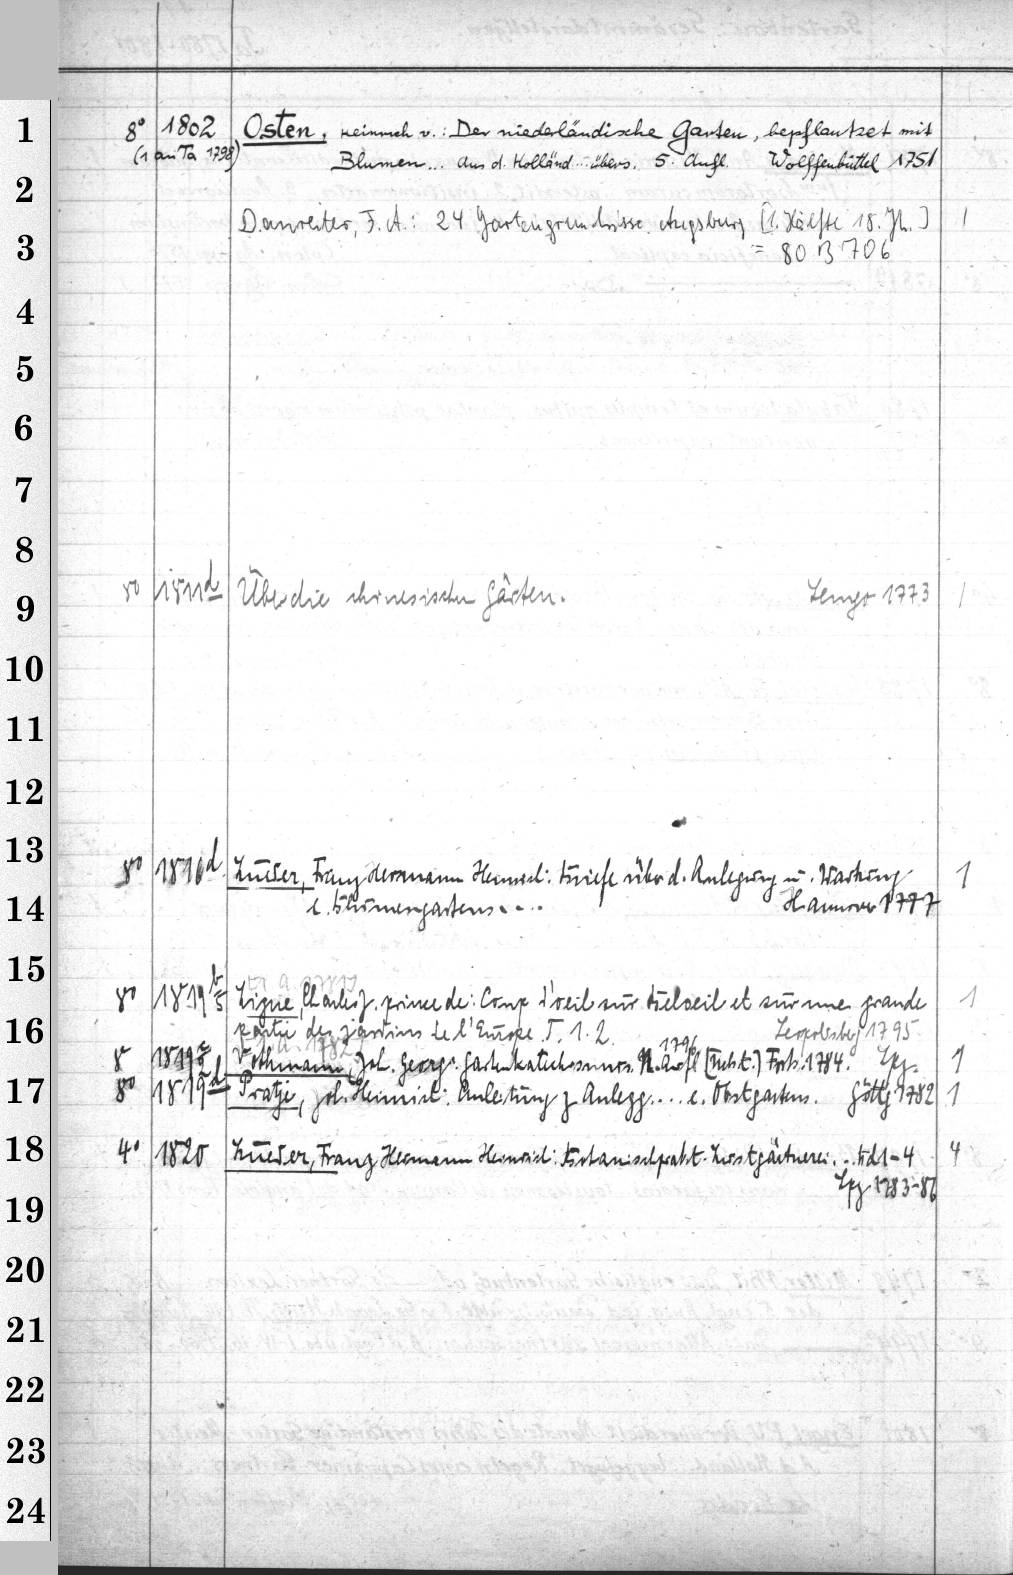 1
8° 1802 Osten, Heinrich v.: Der niederländische Garten, bepflantzet mit
(1 an Ta 1798) Blumen... Aus d. Holländ. übers. 5. Aufl. Wolffenbüttel 1751
2
Danreiter, F. A.: 24 Gartengrundrisse Augsburg [1. Hälfte 18. Jh.] 1
3
= 80 B 706
4
5
6
7
8
8° 1811d Über die chinesischen Gärten. Lemgo 1773 1
9
10
11
12
13
8° 1816d Lueder, Franz Hermann Heinrich: Briefe über d. Anlegung u. Wartung 1
14
e. Blumengartens.... Hannover 1777
15
8° 1819 Ligne, Charles J. prince de: Coup d'oeil sur Beloeil et sur une grande 1
16
partie des jardins de l'Europe. T. 1. 2. Leopoldsberg 1795.
8° 1819 Vothmann, Joh. Georg: Gartenkatechismus. N. Aufl (Nebst.) Forts. 1784. 1796 Lpz. 1
17
8° 1819d Pratje, Joh. Heinrich: Anleitung z Anlegg.... e. Obstgartens. Göttg 1782 1
18
4° 1820 Lueder, Franz Hermann Heinrich: Botanischprakt. Lustgärtnerei... Bd 1-4 4
Lpz 1783-86
19
20
21
22
23
24